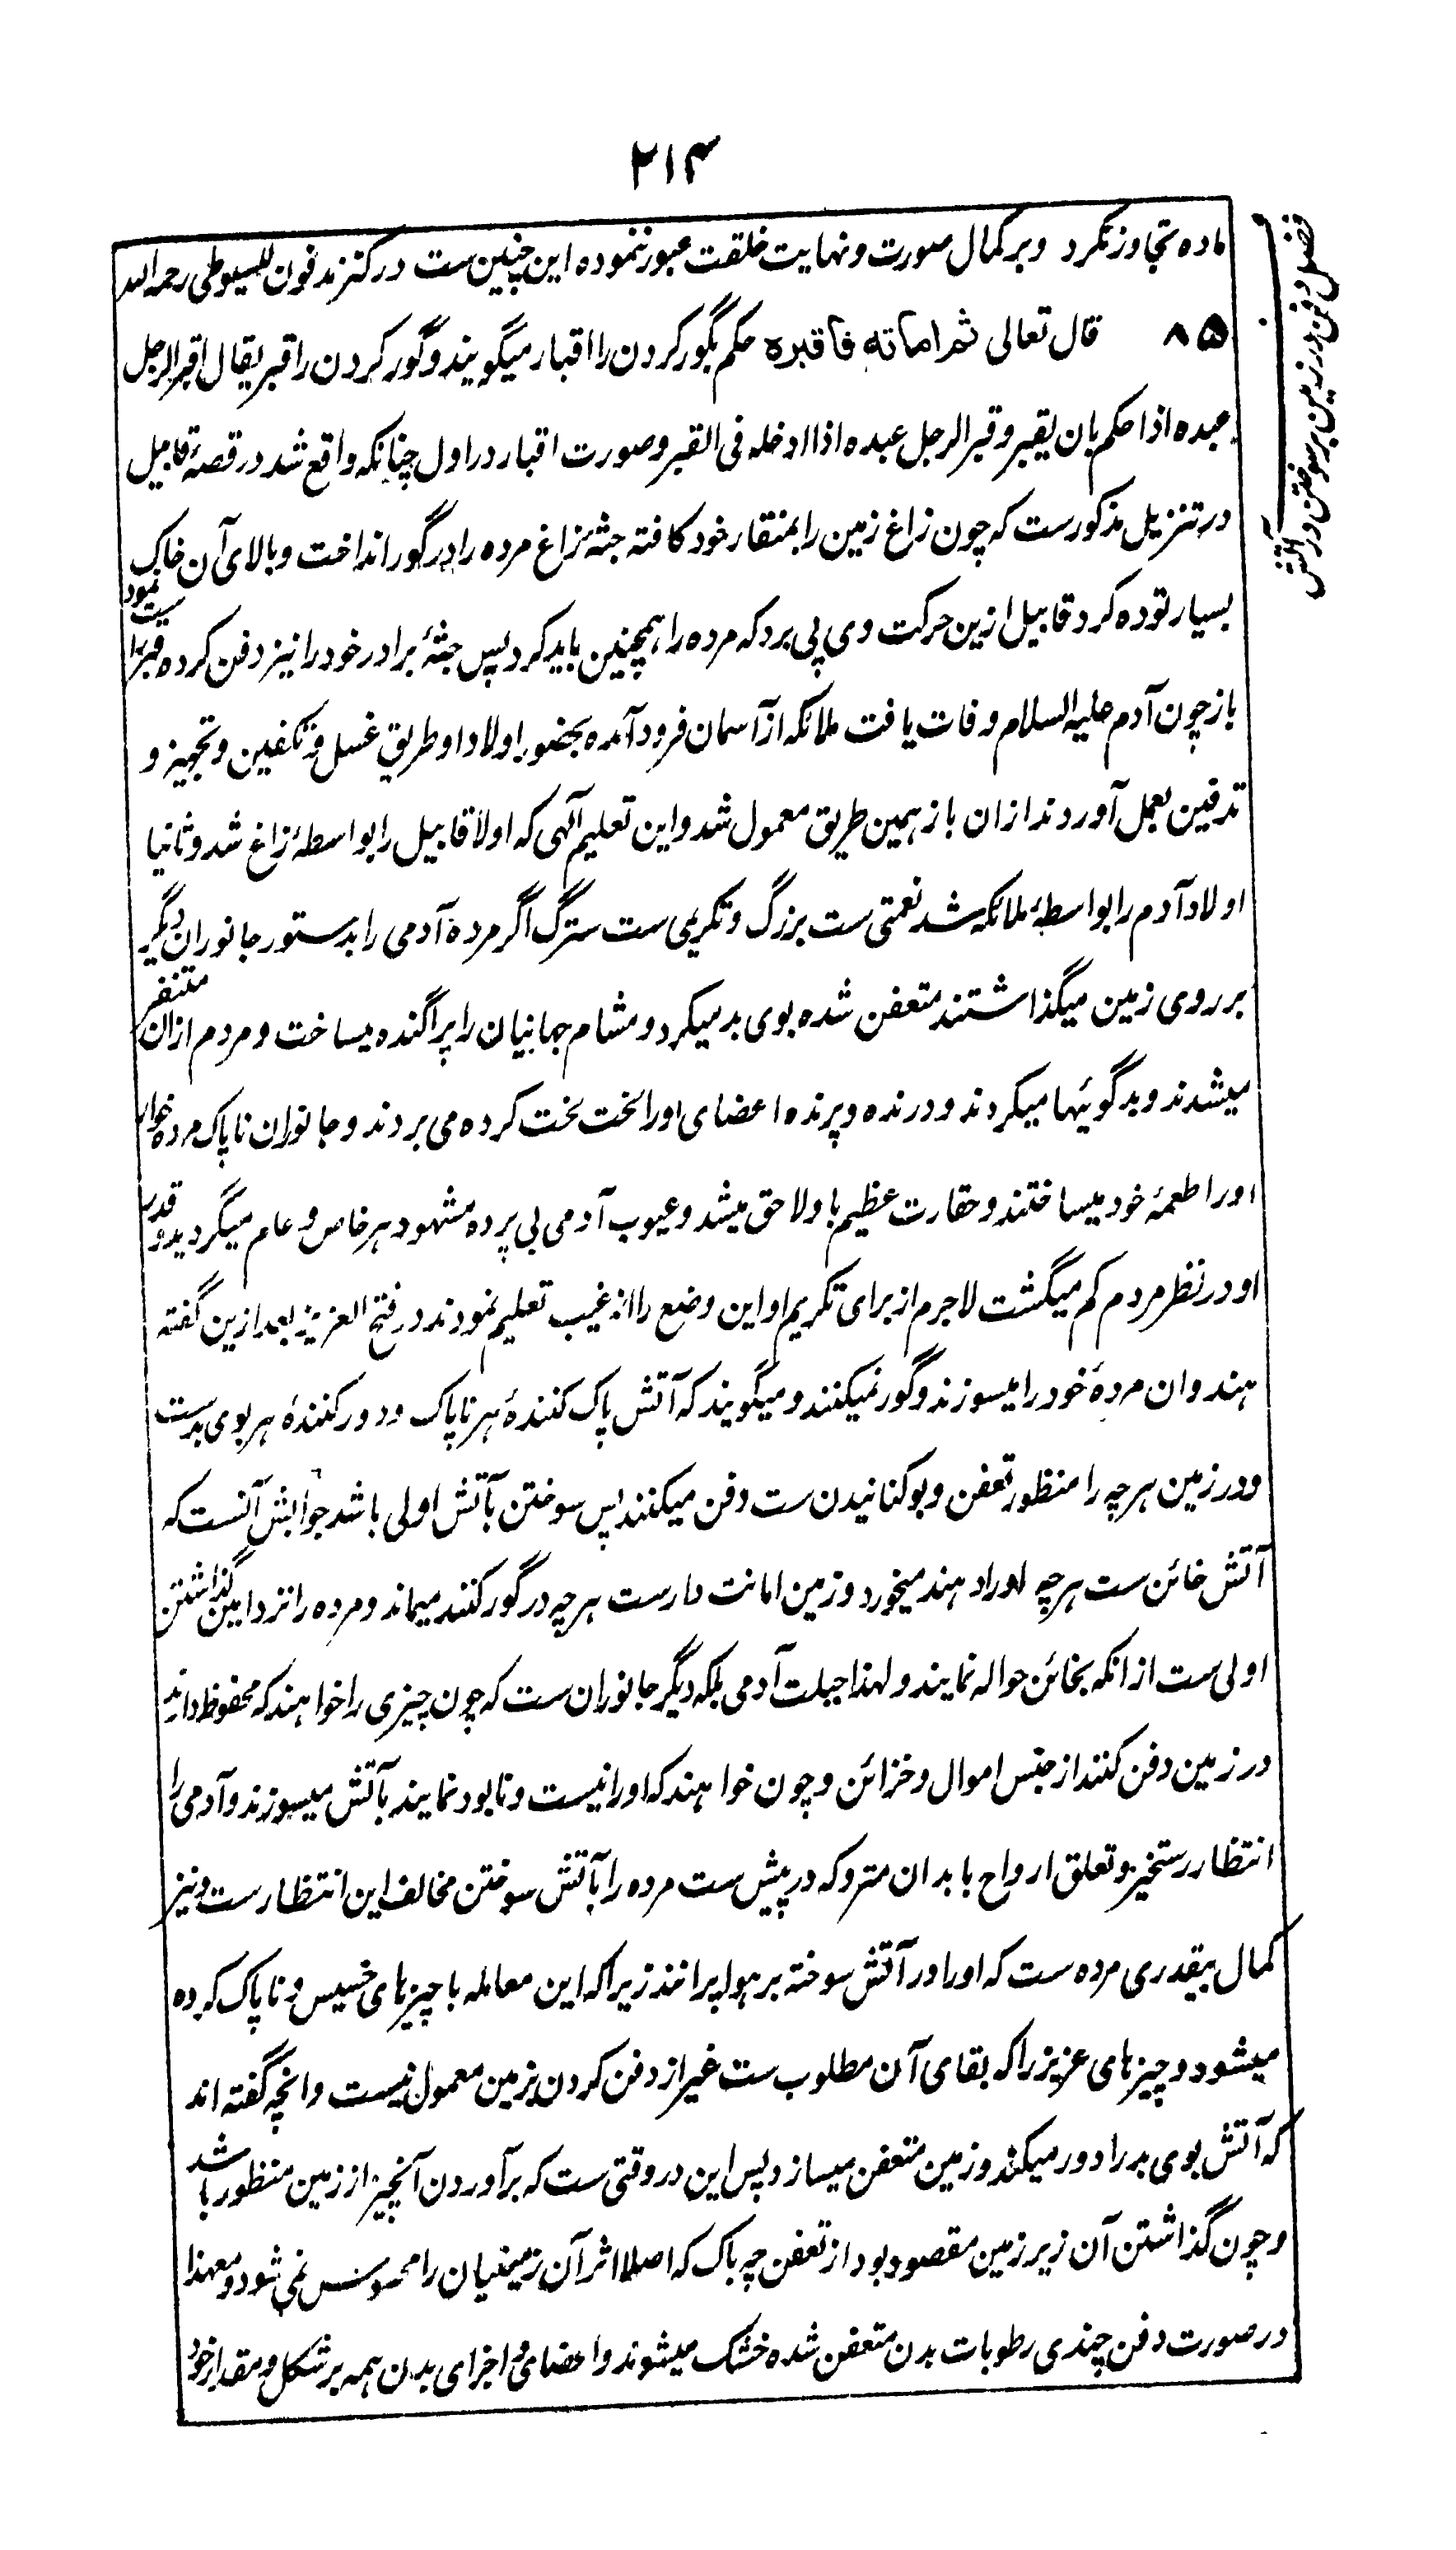 ۲۱۴
فضل دفن در زمین بر سوختن در آتش
ماده تجاوز نکرد و بر کمال صورت و نهایت خلقت عبور ننموده این چنین ست در کنز مدفون للسیوطی رحمه الله
۸۵ قال تعالی ثم اماته فاقبره حکم بگور کردن را اقبار میگویند و گور کردن را قبر یقال اقبر الرجل
عبده اذا حکم بان یقبر و قبر الرجل عبده اذا ادخله فی القبر و صورت اقبار در اول چنانکه واقع شد در قصهٔ قابیل
در تنزیل مذکورست که چون زاغ زمین را بمنقار خود کافته جثهٔ زاغ مرده را در گور انداخت و بالای آن خاک
بسیار توده کرد قابیل ازین حرکت وی پی برد که مرده را همچنین باید کرد پس جثهٔ برادر خود را نیز دفن کرده قبر راست نمود
باز چون آدم علیه السلام وفات یافت ملائکه از آسمان فرود آمده بحضور اولاد او طریق غسل و تکفین و تجهیز و
تدفین بعمل آوردند ازان باز همین طریق معمول شد و این تعلیم آلهی که اولا قابیل را بواسطهٔ زاغ شد و ثانیا
اولاد آدم را بواسطهٔ ملائکه شد نعمتی ست بزرگ و تکریمی ست سترگ اگر مردهٔ آدمی را بدستور جانوران دیگر
بر روی زمین میگذاشتند متعفن شده بوی بد میکرد و مشام جهانیان را پراگنده میساخت و مردم ازان متنفر
میشدند و بدگوئیها میکردند و درنده و پرنده اعضای او را لخت لخت کرده می بردند و جانوران ناپاک مرده خوار
او را طعمهٔ خود میساختند و حقارت عظیم با و لاحق میشد و عیوب آدمی بی پرده مشهود هر خاص و عام میگردید و قدر
او در نظر مردم کم میگشت لاجرم از برای تکریم او این وضع را از غیب تعلیم نمودند در فتح العزیز بعد ازین گفته
هندوان مردهٔ خود را میسوزند و گور نمیکنند و میگویند که آتش پاک کنندهٔ هر ناپاک و دور کنندهٔ هر بوی بدست
و در زمین هر چه را منظور تعفن و بوکنانیدن ست دفن میکنند پس سوختن بآتش اولی باشد جوابش آنست که
آتش خائن ست هر چه او را دهند میخورد و زمین امانت دارست هر چه در گور کنند میماند و مرده را نزد امین گذاشتن
اولی ست از انکه بخائن حواله نمایند و لهذا جبلت آدمی بلکه دیگر جانوران ست که چون چیزی را خواهند که محفوظ دارند
در زمین دفن کنند از جنس اموال و خزائن و چون خواهند که او را نیست و نابود نمایند بآتش میسوزند و آدمی را
انتظار رستخیز و تعلق ارواح با بدان متروکه در پیش ست مرده را بآتش سوختن مخالف این انتظارست و نیز
کمال بیقدری مرده ست که او را در آتش سوخته بر هوا پرانند زیرا که این معامله با چیزهای خسیس و ناپاک کرده
میشود و چیزهای عزیز را که بقای آن مطلوب ست غیر از دفن کردن بزمین معمول نیست و انچه گفته اند
که آتش بوی بد را دور میکند و زمین متعفن میسازد پس این در وقتی ست که برآوردن آنچیز از زمین منظور باشد
و چون گذاشتن آن زیر زمین مقصود بود از تعفن چه باک که اصلا اثر آن زمینیان را محسوس نمی شود و معهذا
در صورت دفن چندی رطوبات بدن متعفن شده خشک میشوند و اعضا و اجزای بدن همه بر شکل و مقدار خود